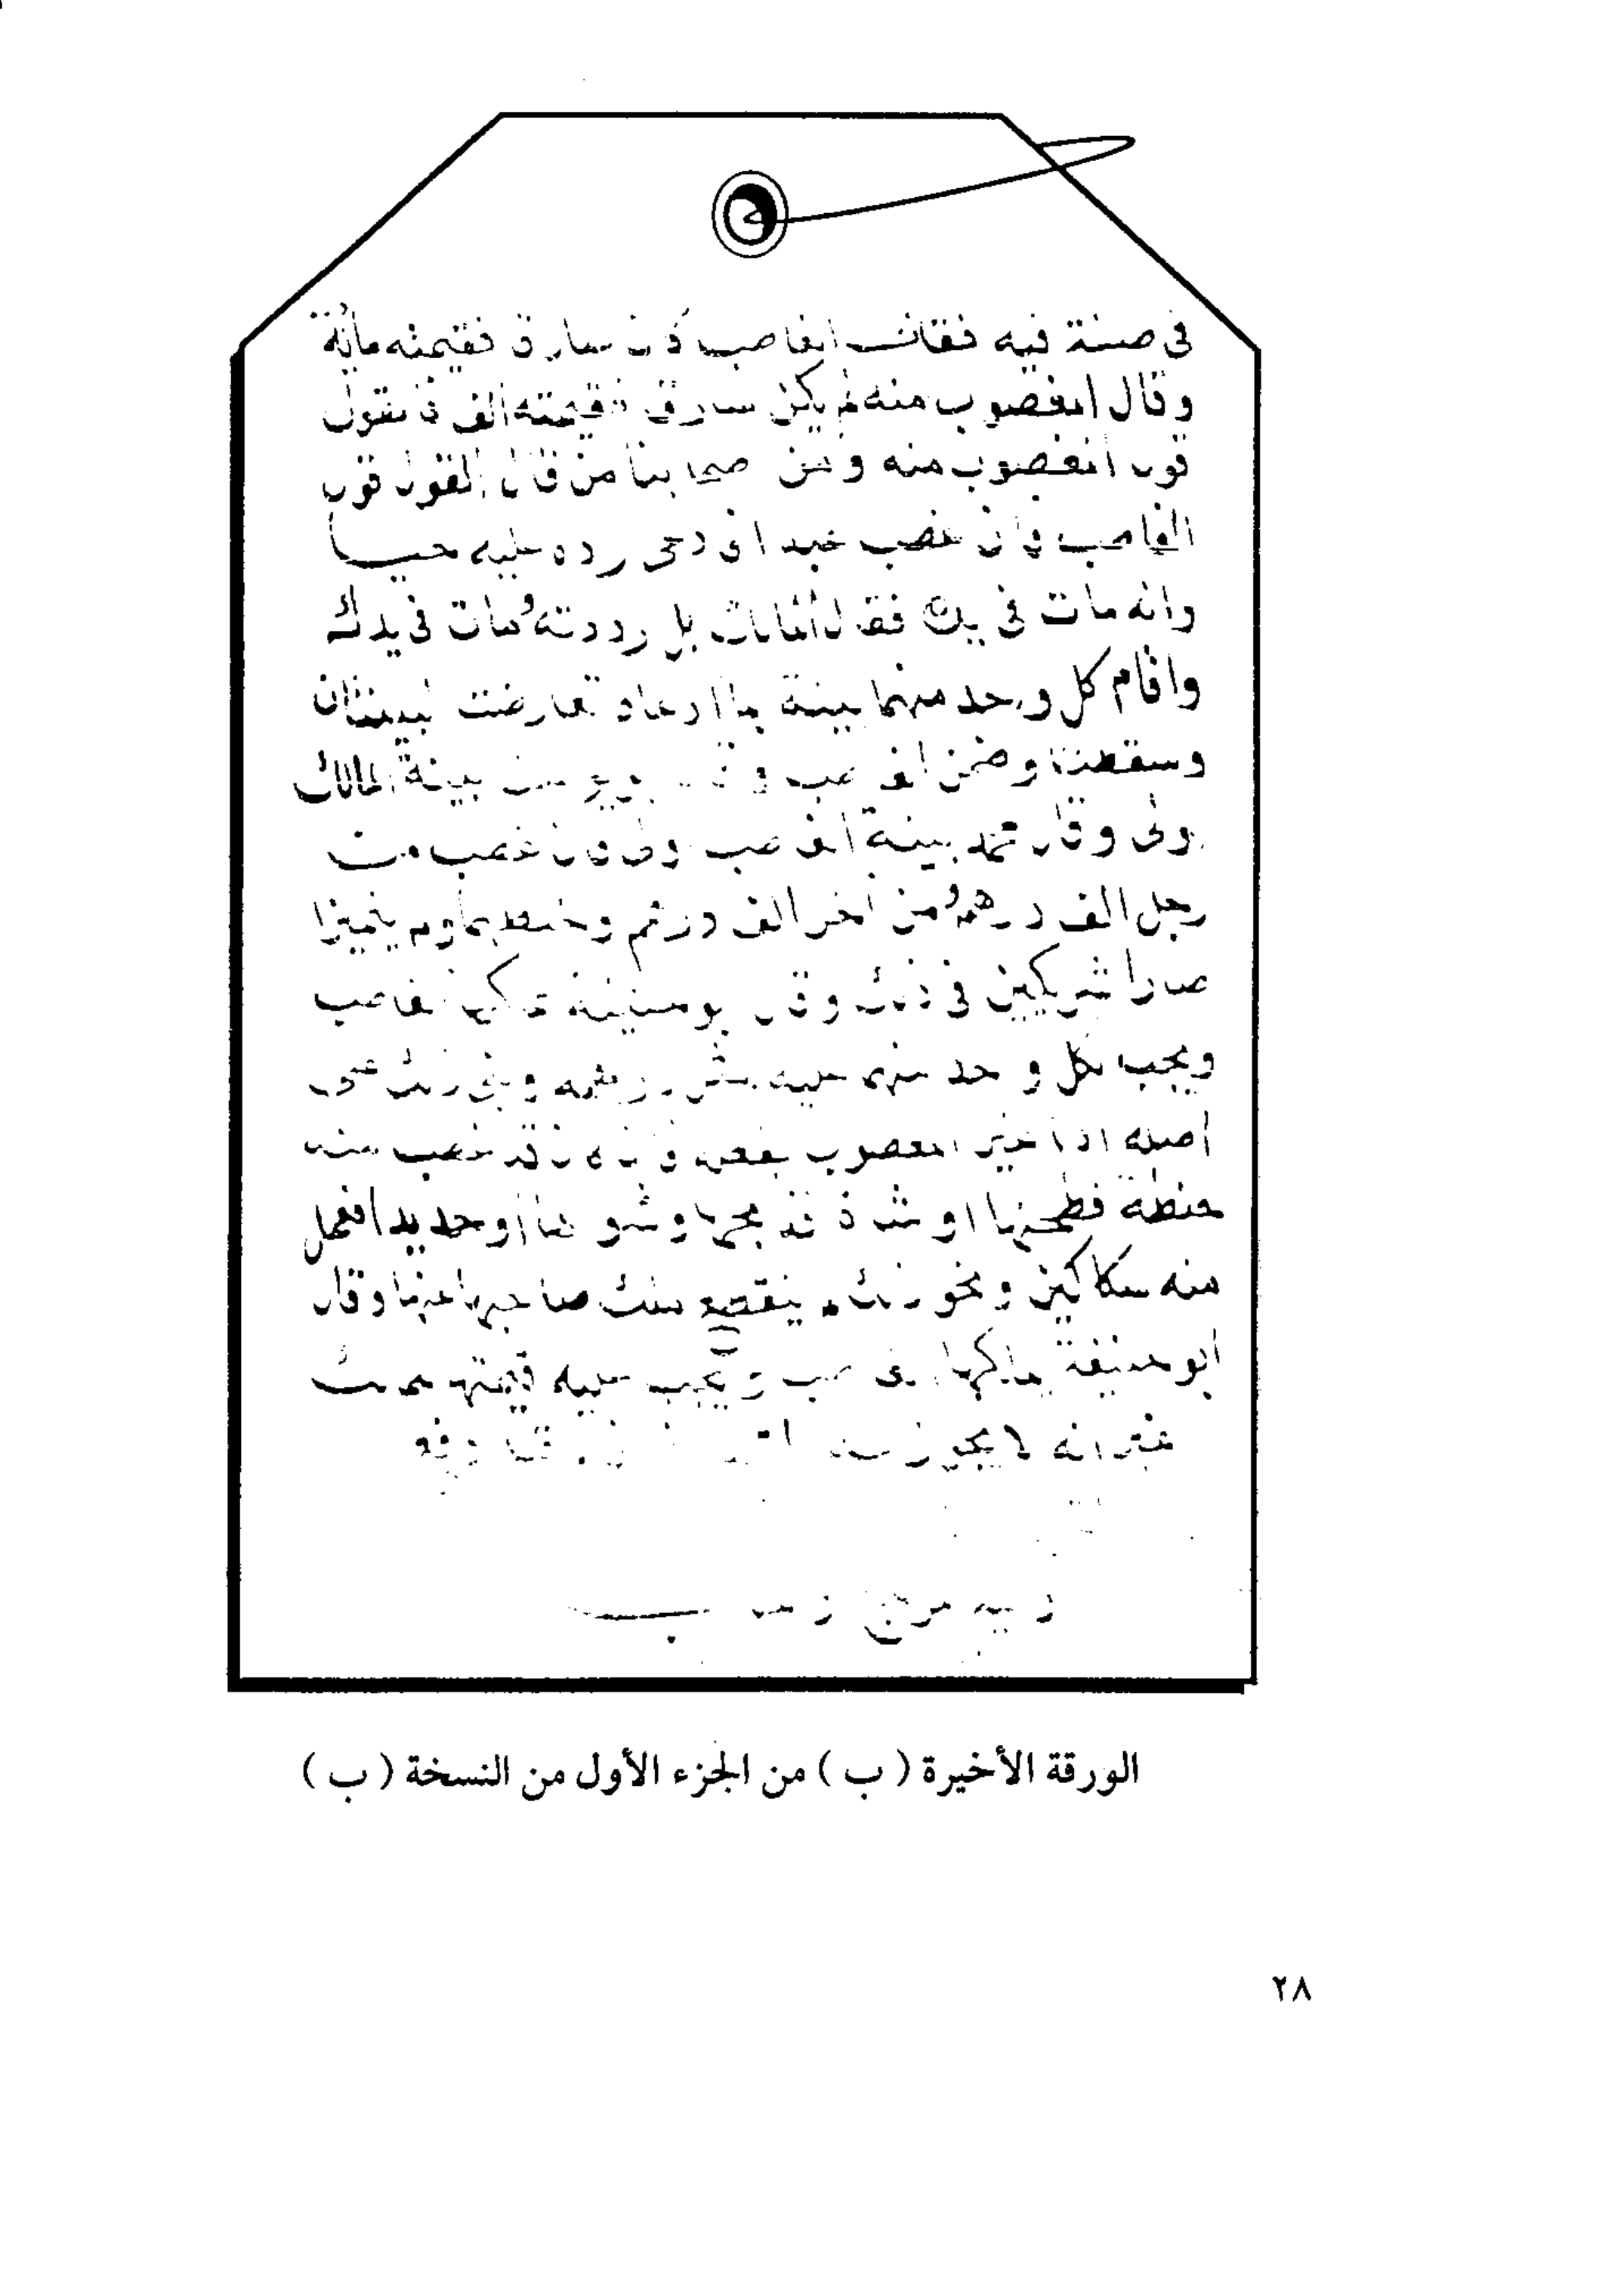 في صفة فيه فقال الغاصب كان سارق فقيمته مائة
وقال المغصوب منه لم يكن سارق فقيمته ألف فالقول
قول المغصوب منه ومن اصحابنا من قال القول قول
الغاصب فان غصب عبدا فادعى رده عليه حيا
وانه مات في يده فقال المالك بل رددته ومات في يدك
واقام كل واحد منهما بينة بما ادعاه تعارضت البينتان
وسقطتا وضمن الغاصب وقال ابو يوسف بينة المالك
اولى وقال محمد بينة الغاصب اولى فان غصب من
رجل الف درهم ومن اخر الف درهم وخلطهما ولم يتميزا
صارا شريكين في ذلك وقال ابو حنيفة يملكهما الغاصب
ويجب لكل واحد منهما عليه مثل دراهمه وبنى ذلك على
اصله اذا غير المغصوب بفعله فانه قد غصب منه
حنطة فطحنها او شاة فذبحها وشواها او حديدا فعمل
منه سكاكين ونحو ذلك لم ينقطع ملك صاحبها عنها وقال
ابو حنيفة يملكها الغاصب ويجب عليه قيمتها
غير انه لا يجوز
الورقة الأخيرة ( ب ) من الجزء الأول من النسخة ( ب )
٢٨